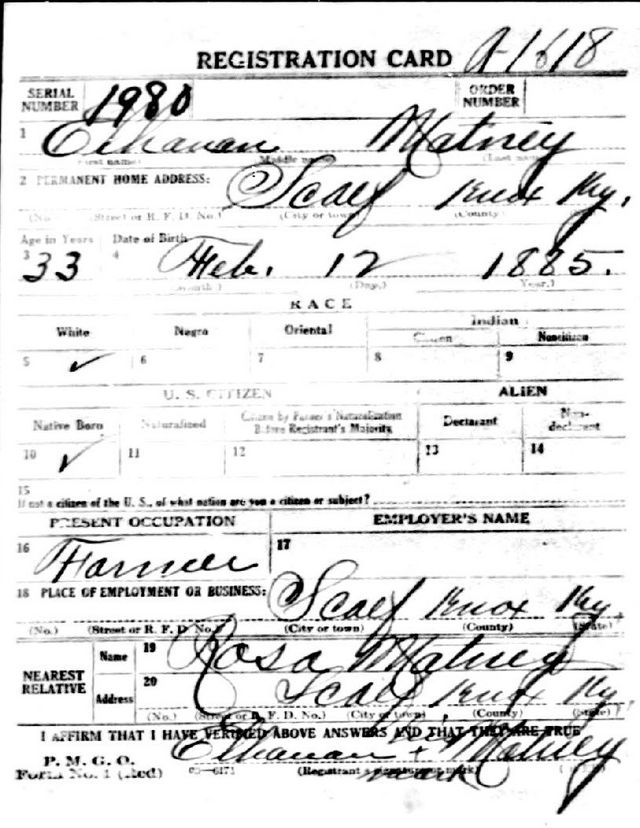 REGISTRATION CARD A-1618
SERIAL NUMBER 1980 ORDER NUMBER
1 Elhanan Matney
(First name) (Middle name) (Last name)
2 PERMANENT HOME ADDRESS: Scalf Knox Ky.
(No.) (Street or R. F. D. No.) (City or town) (County)
Age in Years Date of Birth
3 33 4 Feb. 12 1885.
(Month.) (Day.) (Year.)
RACE
White Negro Oriental Indian
Citizen Noncitizen
5 ✓ 6 7 8 9
U. S. CITIZEN ALIEN
Native Born Naturalized Citizen by Father's Naturalization Before Registrant's Majority Declarant Non-declarant
10 ✓ 11 12 13 14
15
If not a citizen of the U. S., of what nation are you a citizen or subject?
PRESENT OCCUPATION EMPLOYER'S NAME
16 Farmer 17
18 PLACE OF EMPLOYMENT OR BUSINESS: Scalf Knox Ky
(No.) (Street or R. F. D. No.) (City or town) (County) (State)
NEAREST RELATIVE Name 19 Rosa Matney
Address 20 Scalf Knox Ky.
(No.) (Street or R. F. D. No.) (City or town) (County) (State)
I AFFIRM THAT I HAVE VERIFIED ABOVE ANSWERS AND THAT THEY ARE TRUE
P. M. G. O.
Form No. 1 (Red) 03—6171 Elhanan x Matney
(Registrant's signature or mark)
mark